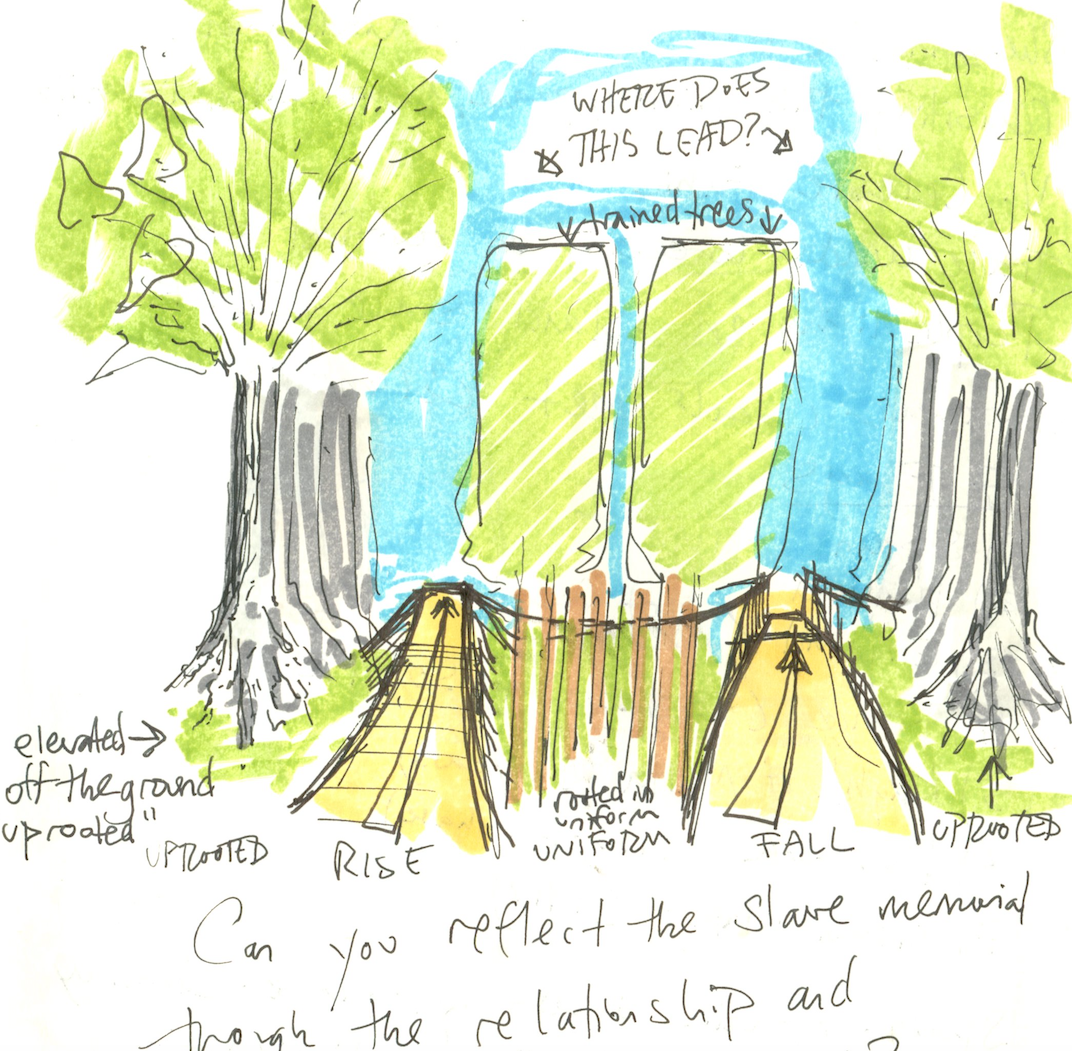 WHERE DOES
THIS LEAD?
trained trees
elevated
off the ground
uprooted"
UPROOTED
RISE
rooted in
uniform
UNIFORM
FALL
UPROOTED
Can you reflect the slave memorial
though the relationship and
?